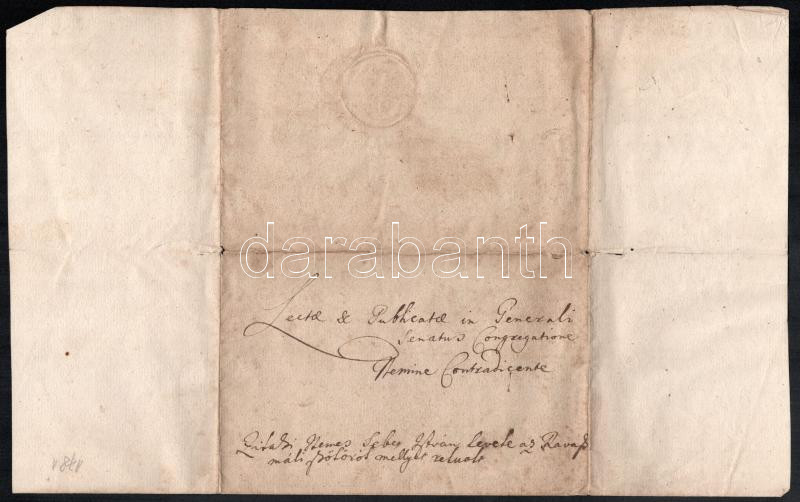 darabanth
Lectæ & Publicatæ in Generali
Senatus Congregatione
Nemine Contradicente
Nemes Seber István levele az Ravasz
máli szőlőről mellyet
1781